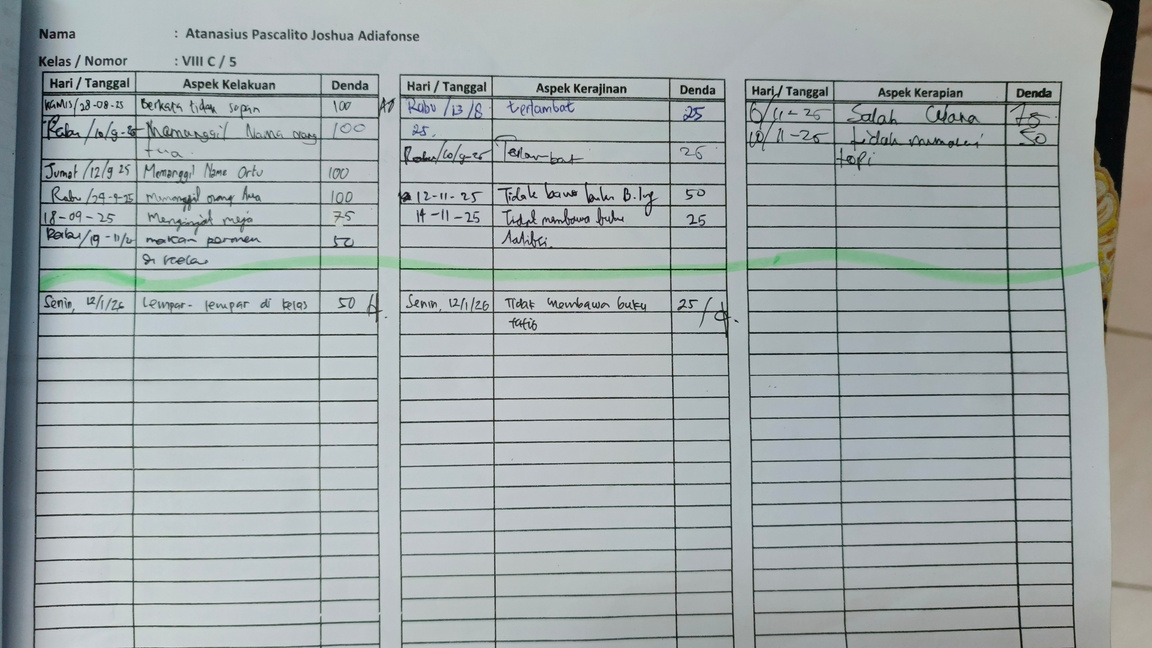 Nama : Atanasius Pascalito Joshua Adiafonse
Kelas / Nomor : VIII C / 5
Hari / Tanggal Aspek Kelakuan Denda
Kamis/28-08-25 Berkata tidak sopan 100
Rabu/10/9-25 Memanggil Nama orang 100
tua
Jumat/12/9 25 Memanggil Nama Ortu 100
Rabu/24-9-25 Memanggil orang tua 100
18-09-25 Menginjat meja 75
Rabu/19-11/2 makan permen 50
di kelas
Senin, 12/1/26 Lempar-lempar di kelas 50
Hari / Tanggal Aspek Kerajinan Denda
Rabu/13/8 terlambat 25
25.
Rabu/10/9-25 Terlambat 25
12-11-25 Tidak bawa buku B.Ing 50
14-11-25 Tidak membawa buku 25
Senin, 12/1/26 Tidak membawa buku 25
tatib
Hari / Tanggal Aspek Kerapian Denda
6/11-25 Salah Celana 75
10/11-25 tidak memakai 50
topi